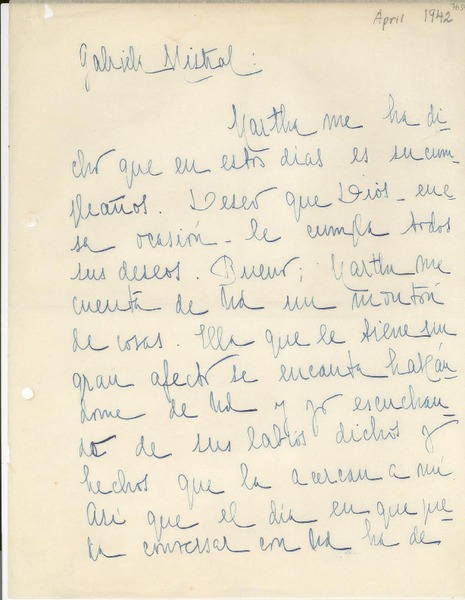 April 1942
Gabriela Mistral:
Martha me ha di-
cho que en estos dias es su cum-
pleaños. Deseo que Dios - en e-
sa ocasión - le cumpla todos
sus deseos. Bueno; Martha me
cuenta de Ud un montón
de cosas. Ella que le tiene un
gran afecto se encanta hablán-
dome de Ud y yo escuchan-
do de sus labios dichos y
hechos que la acercan a mí.
Así que el día en que
conversar con Ud ha de